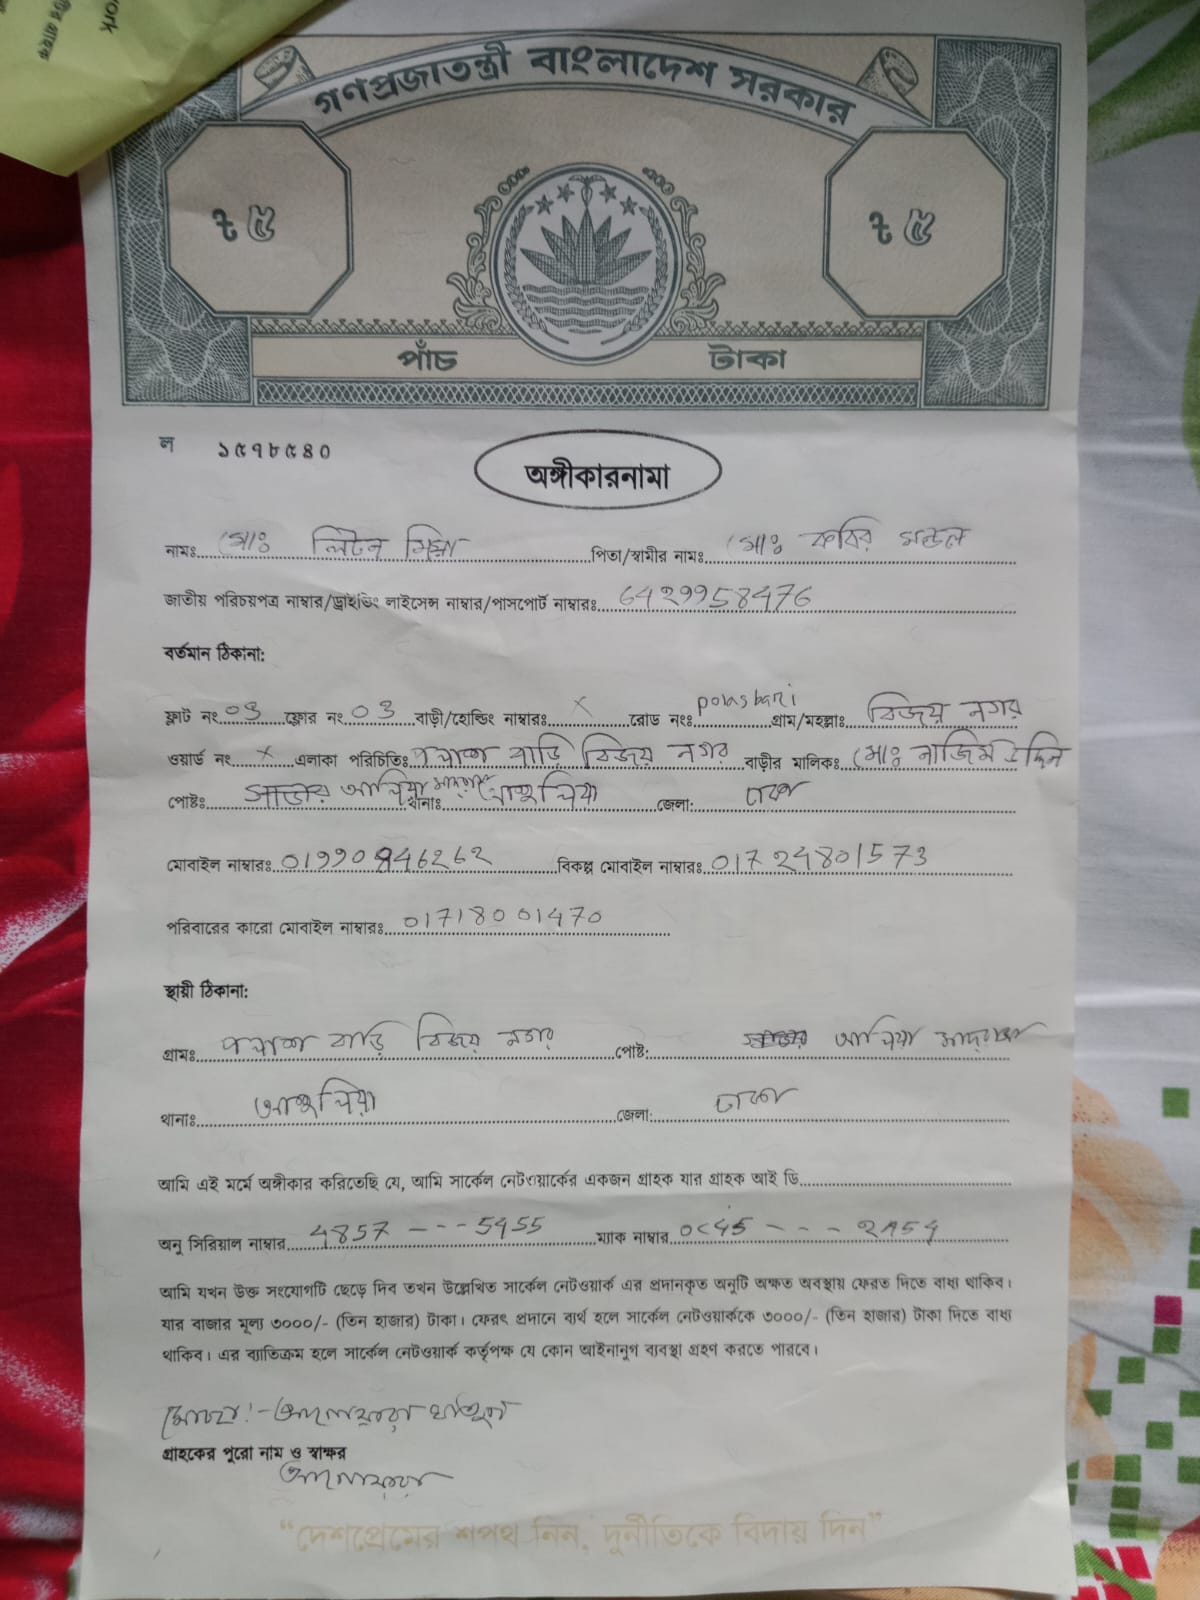 work
গণপ্রজাতন্ত্রী বাংলাদেশ সরকার
৳ ৫ ৳ ৫
পাঁচ টাকা
ল ১৫৭৮৫৪০
অঙ্গীকারনামা
নামঃ মোঃ লিটন মিয়া পিতা/স্বামীর নামঃ মোঃ কবির মন্ডল
জাতীয় পরিচয়পত্র নাম্বার/ড্রাইভিং লাইসেন্স নাম্বার/পাসপোর্ট নাম্বারঃ 6429958476
বর্তমান ঠিকানা:
ফ্লাট নং 03 ফ্লোর নং 03 বাড়ী/হোল্ডিং নাম্বারঃ x রোড নংঃ polasbari গ্রাম/মহল্লাঃ বিজয় নগর
ওয়ার্ড নং x এলাকা পরিচিতিঃ পলাশ বাড়ি বিজয় নগর বাড়ীর মালিকঃ মোঃ নাজিম উদ্দিন
পোষ্টঃ থানাঃ আশুলিয়া জেলা: ঢাকা
মোবাইল নাম্বারঃ 01990846262 বিকল্প মোবাইল নাম্বারঃ 01724801573
পরিবারের কারো মোবাইল নাম্বারঃ 01718001470
স্থায়ী ঠিকানা:
গ্রামঃ পলাশ বাড়ি বিজয় নগর পোষ্ট:
থানাঃ আশুলিয়া জেলা: ঢাকা
আমি এই মর্মে অঙ্গীকার করিতেছি যে, আমি সার্কেল নেটওয়ার্কের একজন গ্রাহক যার গ্রাহক আই ডি
অনু সিরিয়াল নাম্বার 4857 --- 5455 ম্যাক নাম্বার 0C45 --- 2A54
আমি যখন উক্ত সংযোগটি ছেড়ে দিব তখন উল্লেখিত সার্কেল নেটওয়ার্ক এর প্রদানকৃত অনুটি অক্ষত অবস্থায় ফেরত দিতে বাধ্য থাকিব।
যার বাজার মূল্য ৩০০০/- (তিন হাজার) টাকা। ফেরৎ প্রদানে ব্যর্থ হলে সার্কেল নেটওয়ার্ককে ৩০০০/- (তিন হাজার) টাকা দিতে বাধ্য
থাকিব। এর ব্যাতিক্রম হলে সার্কেল নেটওয়ার্ক কর্তৃপক্ষ যে কোন আইনানুগ ব্যবস্থা গ্রহণ করতে পারবে।
মোছা:- আনোয়ারা খাতুন
গ্রাহকের পুরো নাম ও স্বাক্ষর
আনোয়ারা
“দেশপ্রেমের শপথ নিন, দুর্নীতিকে বিদায় দিন”